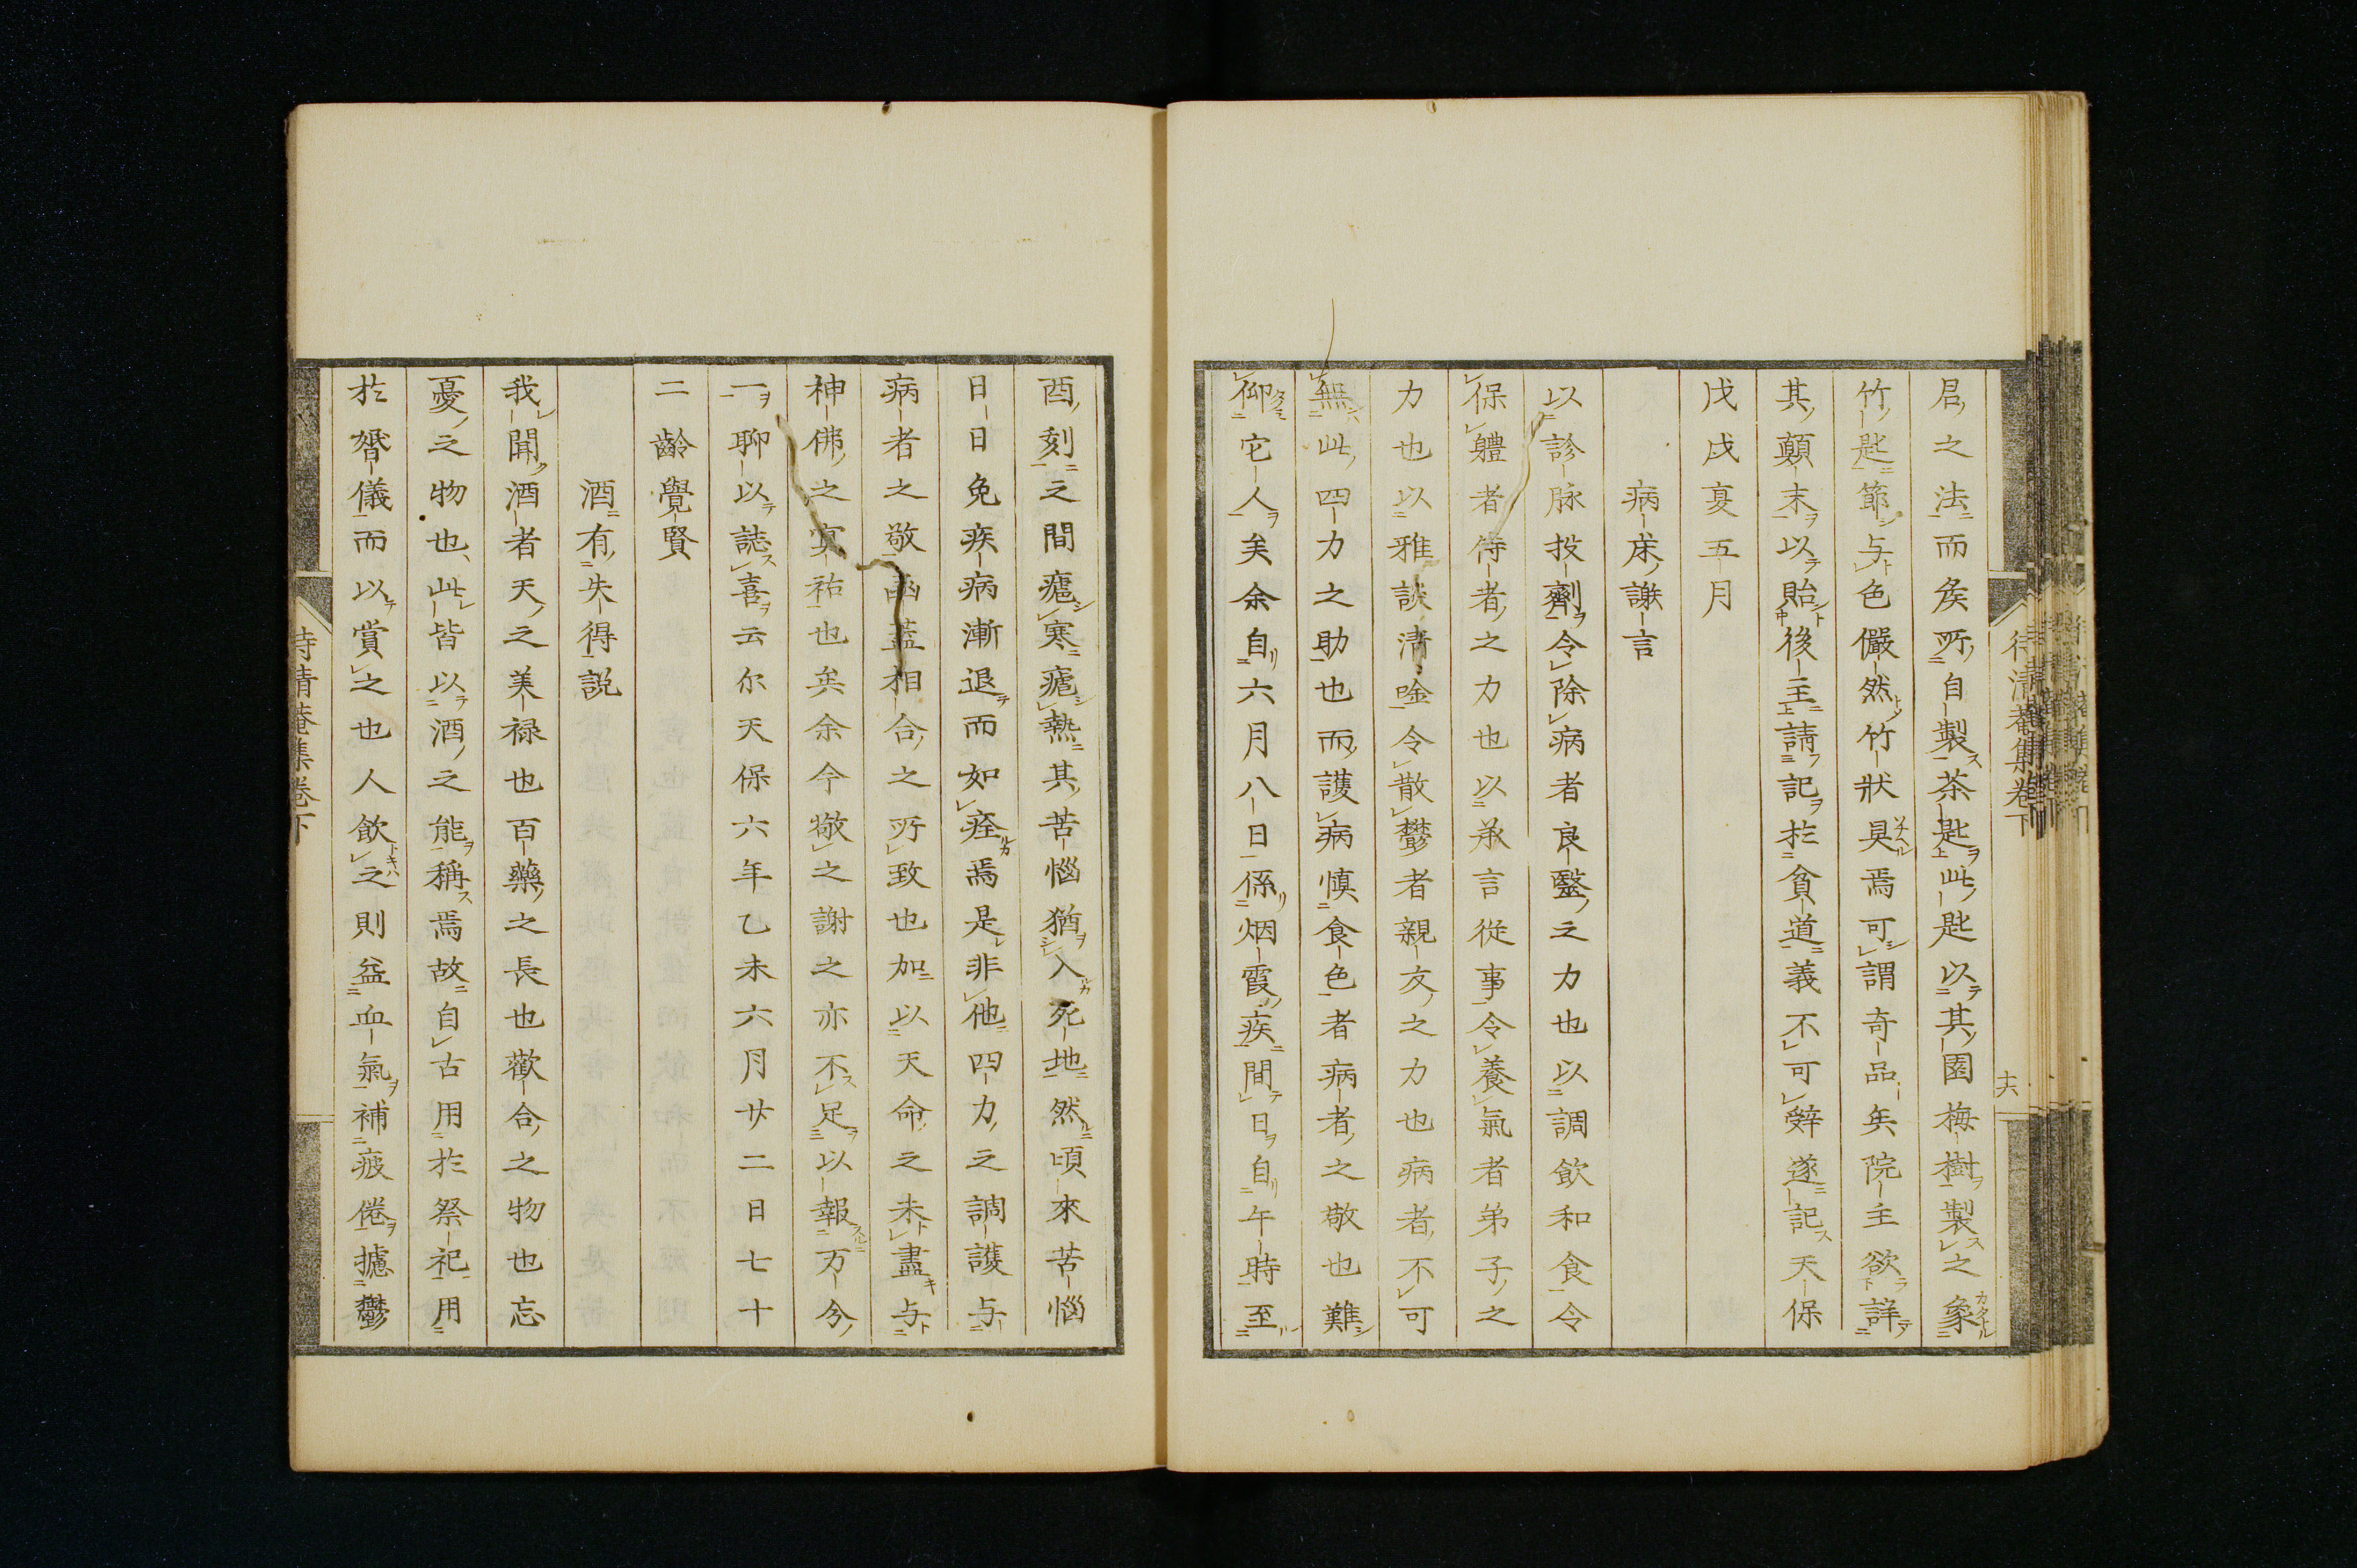 君之法而矦所自製茶匙此匙以其園梅樹製之象
竹匙節与色儼然竹狀具焉可謂奇品矣院主欲詳
其顛末以貽後主請記於貧道義不可辤遂記天保
戊戌夏五月
病床謝言
以診脉投劑令除病者良醫之力也以調飲和食令
保軆者侍者之力也以承言從事令養氣者弟子之
力也以雅談清唫令散鬱者親友之力也病者不可
無此四力之助也而護病慎食色者病者之敬也難
仰它人矣余自六月八日係烟霞疾間日自午時至
酉刻之間瘧寒瘧熱其苦惱猶入死地然頃來苦惱
日日免疾病漸退而如痊焉是非他四力之調護与
病者之敬函蓋相合之所致也加以天命之未盡与
神佛之冥祐也矣余今敬之謝之亦不足以報万分
一聊以誌喜云尔天保六年乙未六月廿二日七十
二齡覺賢
酒有失得説
我聞酒者天之美禄也百藥之長也歡合之物也忘
憂之物也此皆以酒之能稱焉故自古用於祭祀用
於婚儀而以賞之也人飲之則益血氣補疲倦攄鬱
待清菴集卷下
十六
待清菴集卷下